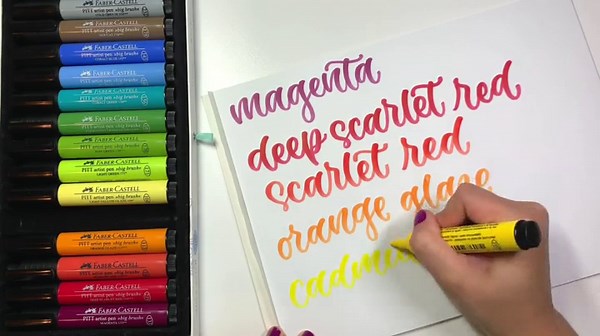 FABER-CASTELL
PITT artist pen »big brush«
FABER-CASTELL
PITT artist pen »big brush«
FABER-CASTELL
PITT artist pen »big brush«
FABER-CASTELL
PITT artist pen »big brush«
FABER-CASTELL
PITT artist pen »big brush«
FABER-CASTELL
PITT artist pen »big brush«
FABER-CASTELL
PITT artist pen »big brush«
FABER-CASTELL
PITT artist pen »big brush«
FABER-CASTELL
PITT artist pen »big brush«
FABER-CASTELL
PITT artist pen »big brush«
FABER-CASTELL
PITT artist pen »big brush«
FABER-CASTELL
PITT artist pen »big brush«
magenta
deep scarlet red
scarlet red
orange glaze
cadmiu